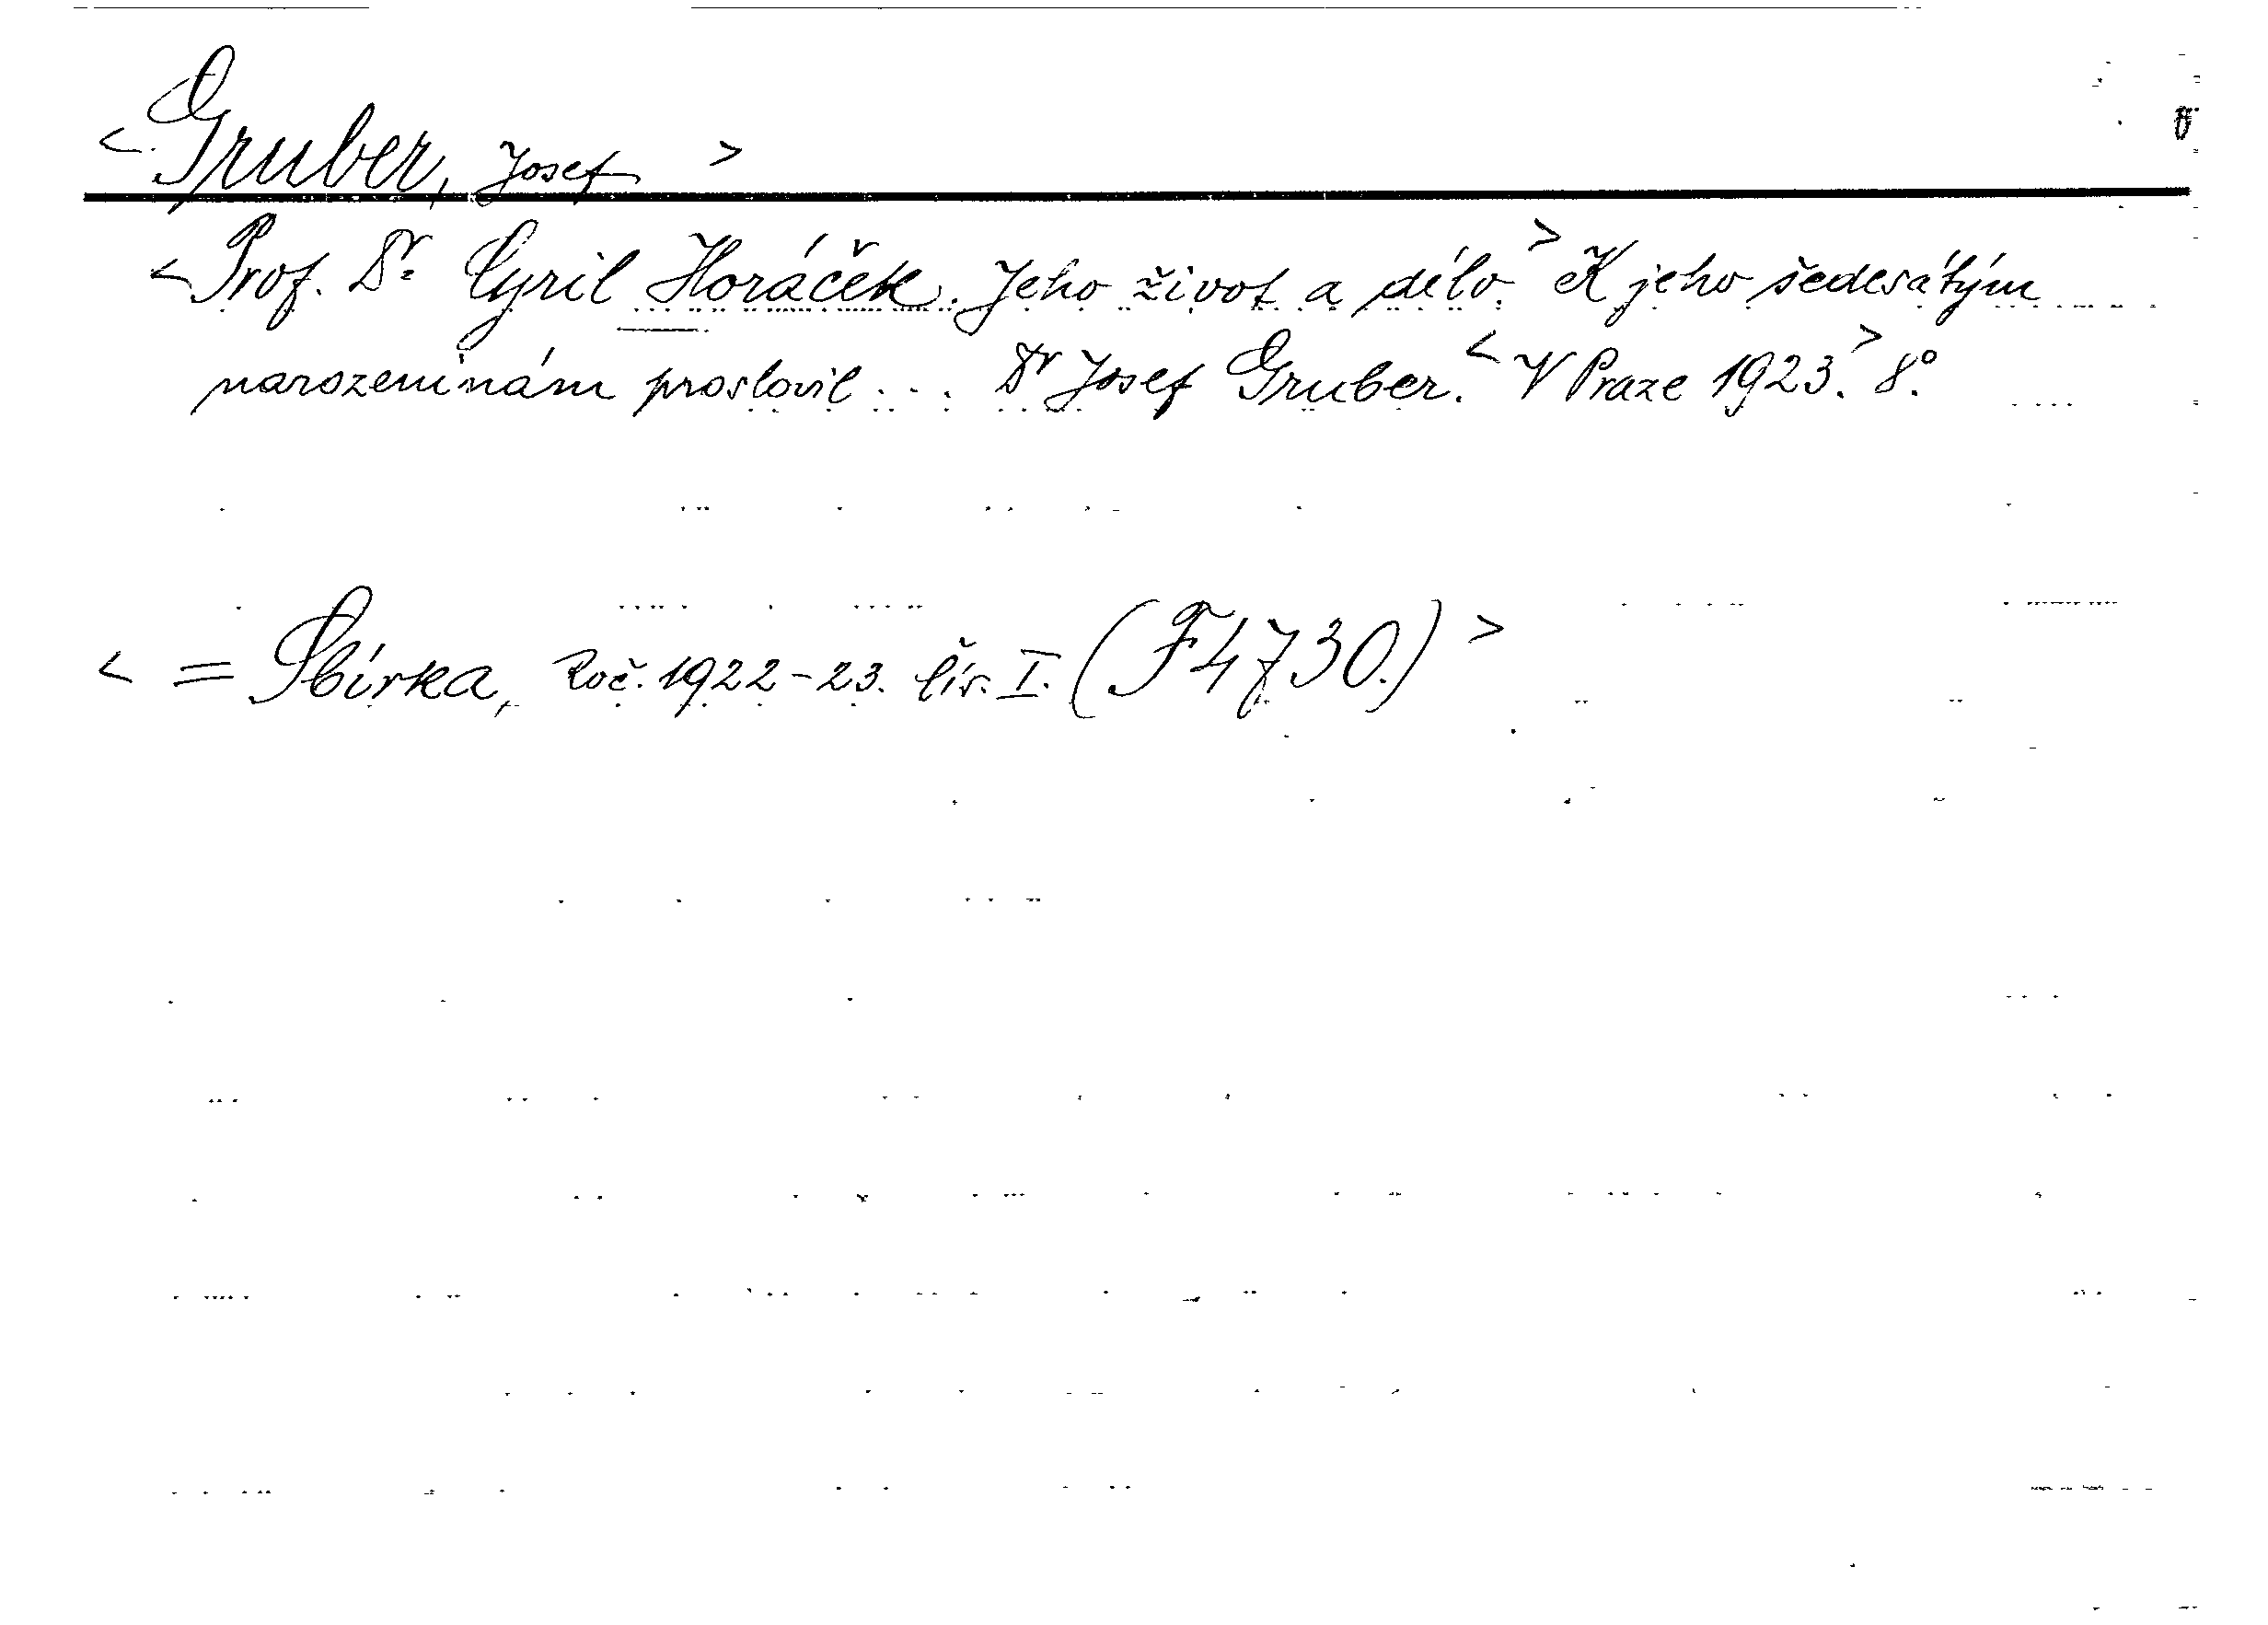 < Gruber, Josef >
< Prof. Dr. Cyril Horáček. Jeho život a dílo. > K jeho šedesátým
narozeninám proslovil... Dr Josef Gruber. < V Praze 1923. > 8°.
< = Sbírka, Roč. 1922-23. čís. I. (F 4730.) >